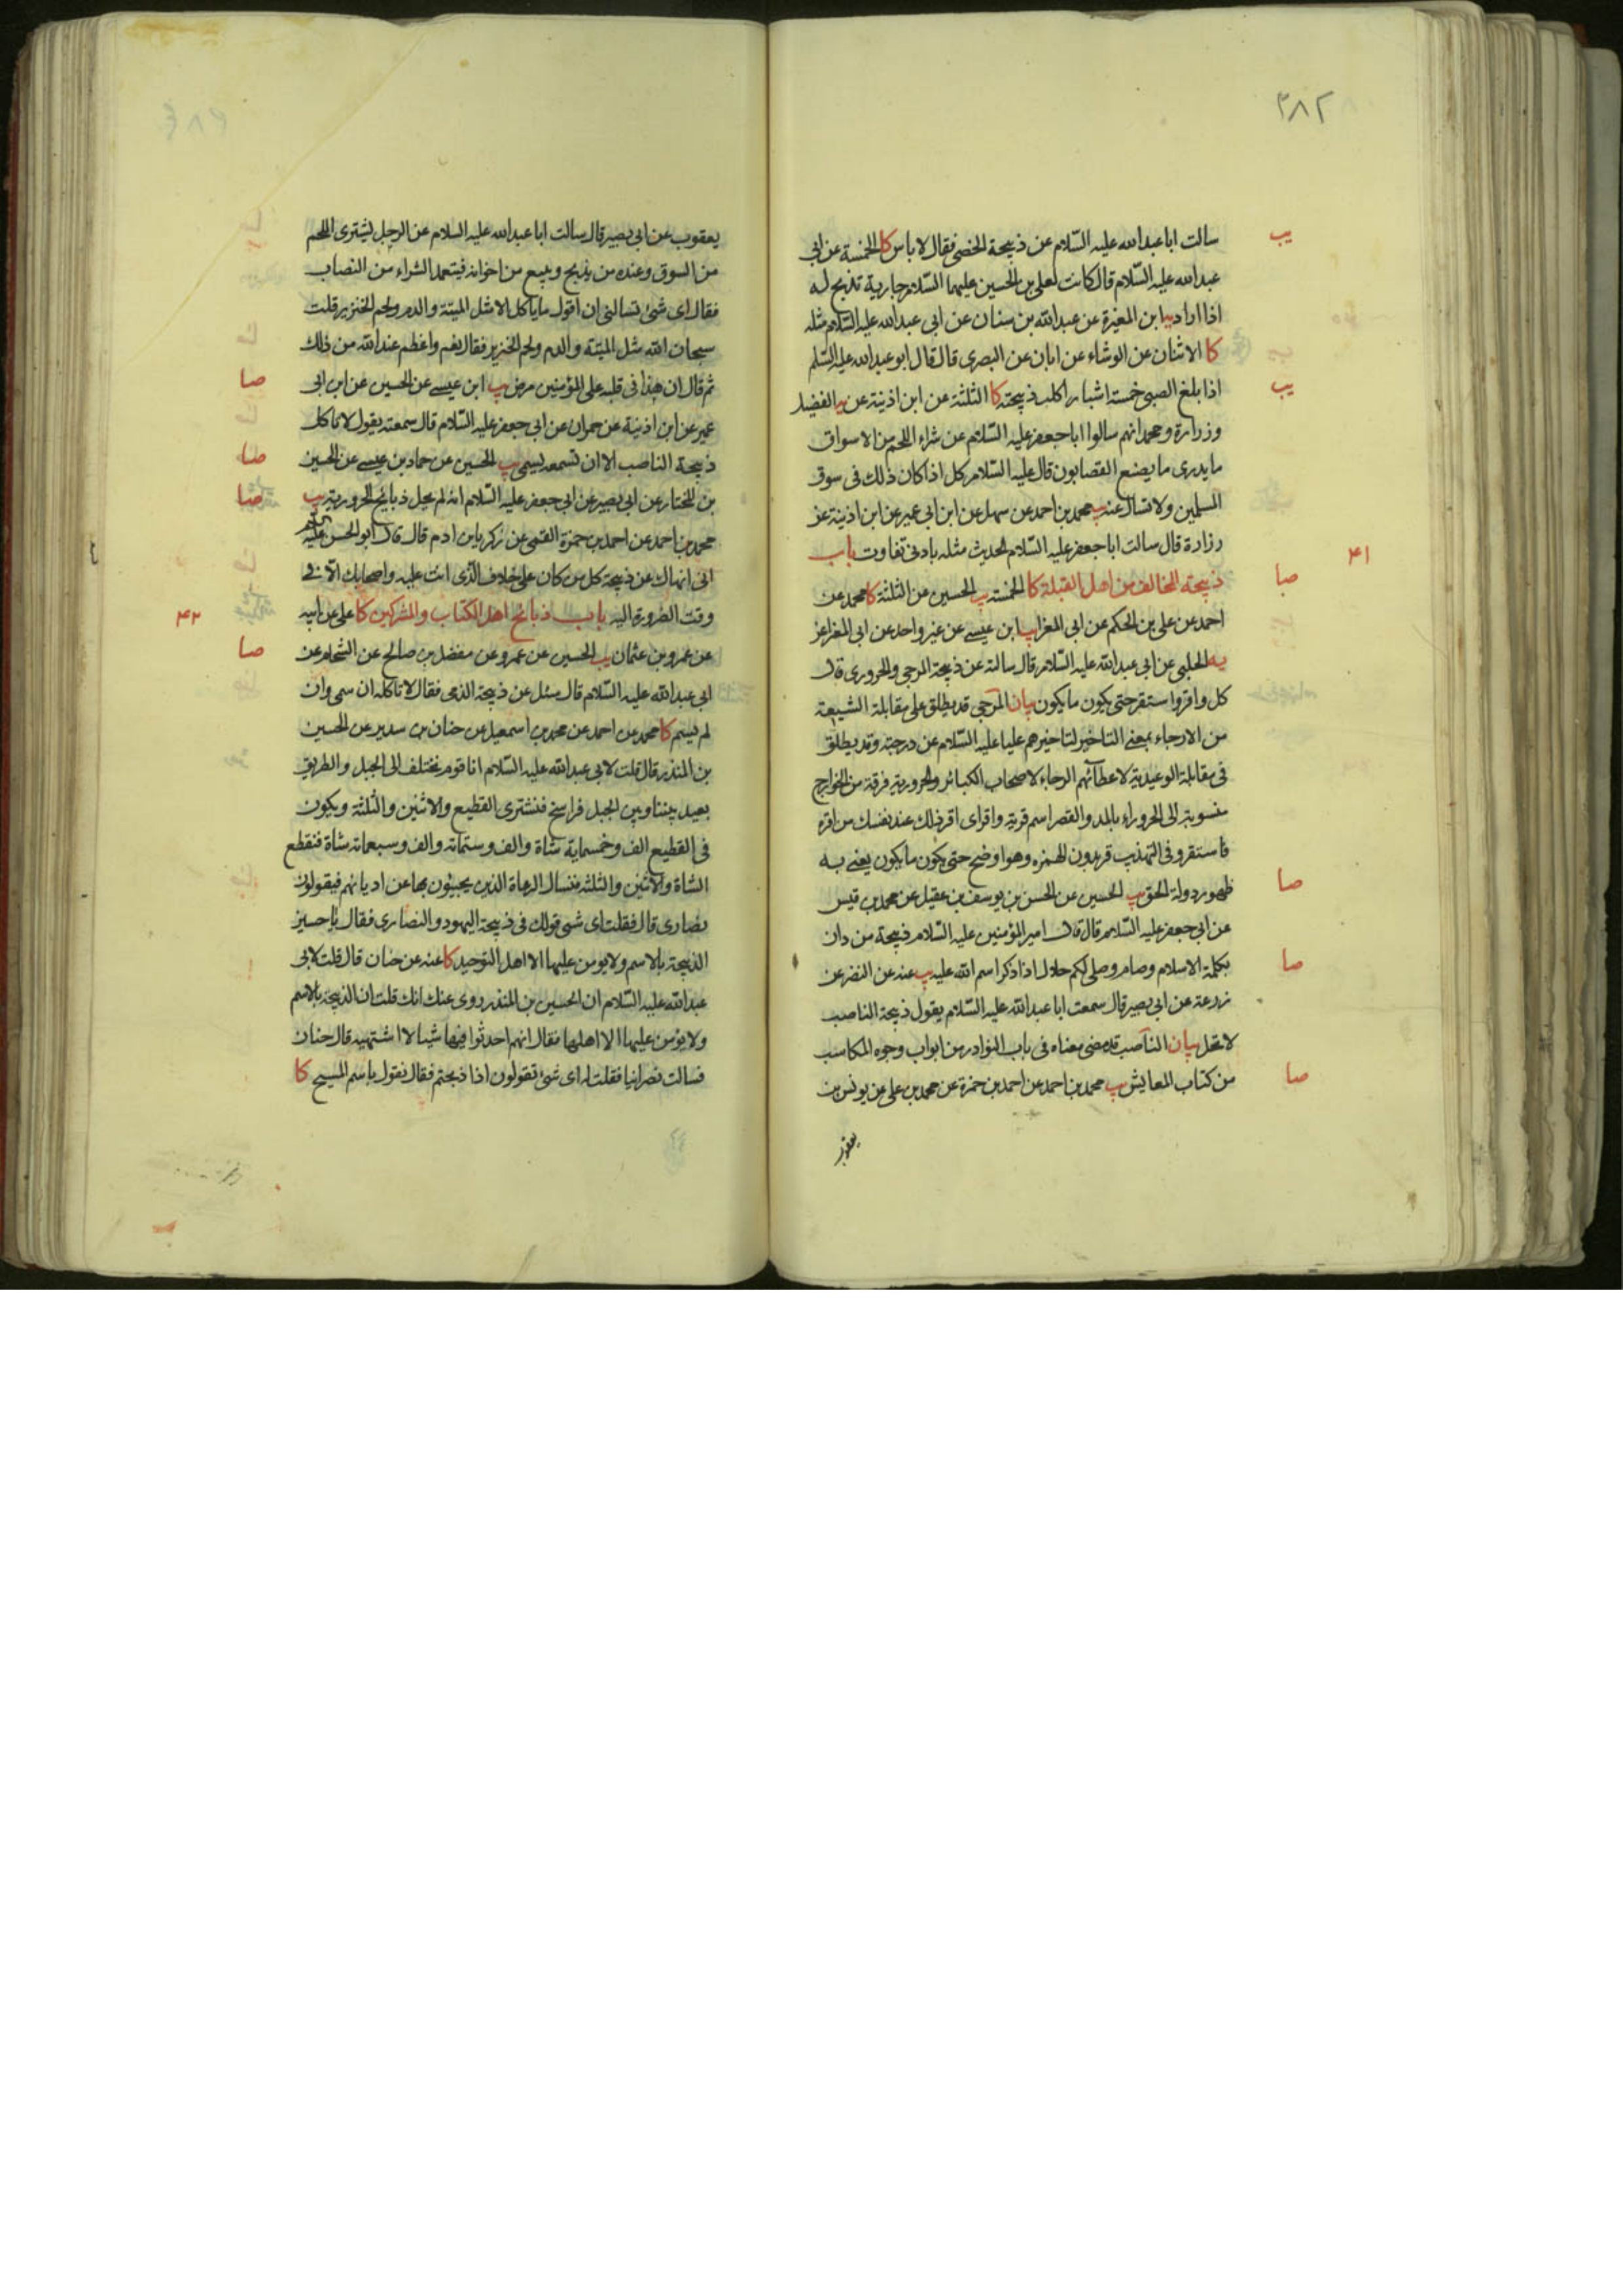 ٣٨٢
سالت ابا عبدالله عليه السّلام عن ذبيحة الخصى فقال لا باس كا الخمسة عن ابى
يب
عبدالله عليه السّلام قال كانت لعلى بن الحسين عليهما السّلام جارية تذبح له
اذا اراد يه ابن المغيرة عن عبدالله بن سنان عن ابى عبدالله عليه السّلام مثله
كا الاثنان عن الوشاء عن ابان عن البصرى قال قال ابو عبدالله عليه السّلم
اذا بلغ الصبى خمسة اشبار اكلت ذبيحته كا الثلثة عن ابن اذينة عن يه الفضيل
يب
وزرارة ومحمد انهم سالوا ابا جعفر عليه السّلام عن شراء اللحم من الاسواق
ما يدرى ما يصنع القصابون قال عليه السّلام كل اذا كان ذلك فى سوق
المسلمين ولا تسال عنه يب محمد بن احمد عن سهل عن ابن ابى عمير عن ابن اذينة عن
زرارة قال سالت ابا جعفر عليه السّلام الحديث مثله بادنى تفاوت باب
٤١
ذبيحة المخالف من اهل القبلة كا الخمسة يب الحسين عن الثلثة كا محمد عن
صا
احمد عن على بن الحكم عن ابى المغرا يب ابن عيسى عن غير واحد عن ابى المغرا عن
يه الحلبى عن ابى عبدالله عليه السّلام قال سالته عن ذبيحة المرجى والحرورى قال
كل واقر واستقر حتى يكون ما يكون بيان المرجى قد يطلق على مقابلة الشيعة
من الارجاء بمعنى التاخير لتاخيرهم عليا عليه السّلام عن درجته وقد يطلق
فى مقابلة الوعيدية لاعطائهم الرجاء لاصحاب الكبائر والحرورية فرقة من الخوارج
منسوبة الى الحروراء بالمد والقصر اسم قرية واقر اى اقر ذلك عند نفسك من اقره
فاستقر وفى التهذيب قر بدون الهمزه وهو اوضح حتى يكون ما يكون يعنى به
ظهور دولة الحق يب الحسين عن الحسن بن يوسف بن عقيل عن محمد بن قيس
صا
عن ابى جعفر عليه السّلام قال قال امير المؤمنين عليه السّلام ذبيحة من دان
بكلمة الاسلام وصام وصلى لكم حلال اذا ذكر اسم الله عليه يب عنه عن النضر عن
صا
زرعة عن ابى بصير قال سمعت ابا عبدالله عليه السّلام يقول ذبيحة الناصب
لا تحل بيان الناصب قد مضى معناه فى باب النوادر من ابواب وجوه المكاسب
من كتاب المعايش يب محمد بن احمد عن احمد بن حمزة عن محمد بن على عن يونس بن
صا
يعقوب
يعقوب عن ابى بصير قال سالت ابا عبدالله عليه السلام عن الرجل يشترى اللحم
من السوق وعنده من يذبح ويبيع من اخوانه فيتعمد الشراء من النصاب
فقال اى شئ تسالنى ان اقول ما ياكل الا مثل الميتة والدم ولحم الخنزير قلت
سبحان الله مثل الميتة والدم ولحم الخنزير فقال نعم واعظم عندالله من ذلك
ثم قال ان هذا فى قلبه على المؤمنين مرض يب ابن عيسى عن الحسين عن ابن ابى
صا
عمير عن ابن اذينة عن حمران عن ابى جعفر عليه السّلام قال سمعته يقول لا تاكل
ذبيحة الناصب الا ان تسمعه يسمى يب الحسين عن حماد بن عيسى عن الحسين
صا
بن المختار عن ابى بصير عن ابى جعفر عليه السّلام انه لم يحل ذبايح الحرورية يب
صا
محمد بن احمد عن احمد بن حمزة القمى عن زكريا بن ادم قال قال ابو الحسن عليه السّلام
انى انهاك عن ذبيحة كل من كان على خلاف الّذى انت عليه واصحابك الّا فى
وقت الضرورة اليه باب ذبائح اهل الكتاب والمشركين كا على عن ابيه
٤٢
عن عمرو بن عثمان يب الحسين عن عمرو عن مفضل بن صالح عن الشحام عن
صا
ابى عبدالله عليه السّلام قال سئل عن ذبيحة الذمى فقال لا تاكله ان سمى وان
لم يسم كا محمد عن احمد عن محمد بن اسمعيل عن حنان بن سدير عن الحسين
بن المنذر قال قلت لابى عبدالله عليه السّلام انا قوم نختلف الى الجبل والطريق
بعيد بيننا وبين الجبل فراسخ فنشترى القطيع والاثنين والثلثة ويكون
فى القطيع الف وخمسماية شاة والف وستماته والف وسبعماته شاة فتقطع
الشاة والاثنين والثلثه فنسال الرعاة الذين يجيئون بها عن اديانهم فيقولون
نصارى قال فقلت اى شى قولك فى ذبيحة اليهود والنصارى فقال يا حسين
الذبيحة بالاسم ولا يومن عليها الا اهل التوحيد كا عنه عن حنان قال قلت لابى
عبدالله عليه السّلام ان الحسين بن المنذر روى عنك انك قلت ان الذبيحة بالاسم
ولا يؤمن عليها الا اهلها فقال انهم احدثوا فيها شيئا لا اشتهيه قال حنان
فسالت نصرانيا فقلت له اى شئ تقولون اذا ذبحتم فقال نقول باسم المسيح كا